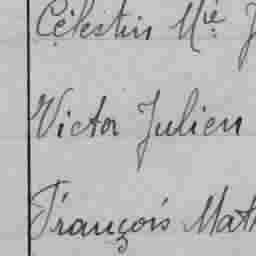 Célestin Mie
Victor Julien
François Math